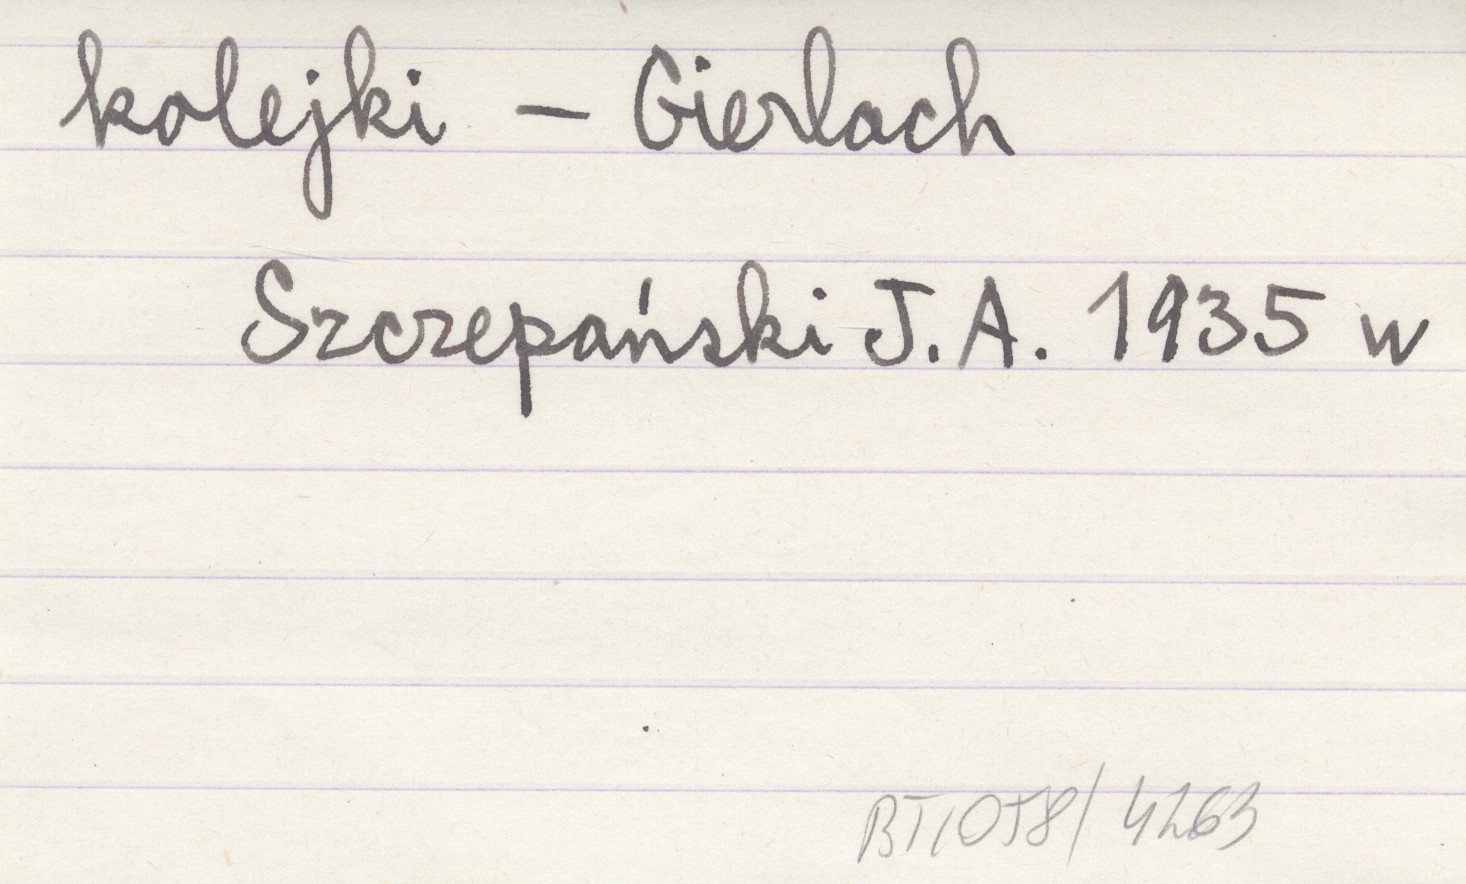 kolejki – Gierlach
Szczepański J. A. 1935 w
BT/058/4263